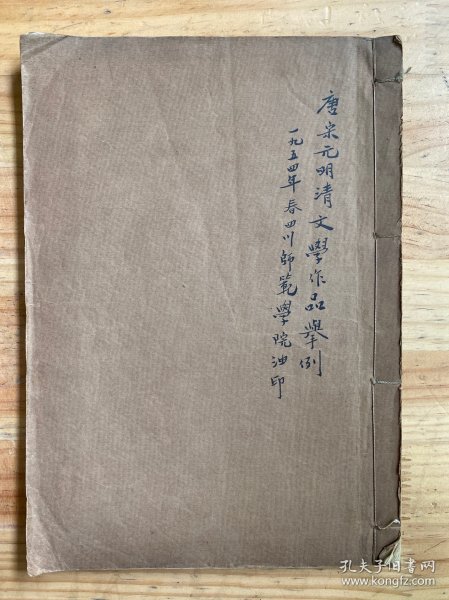 唐宋元明清文學作品舉例
一九五四年春四川師範學院油印
孔夫子旧书网
www.kongfz.com